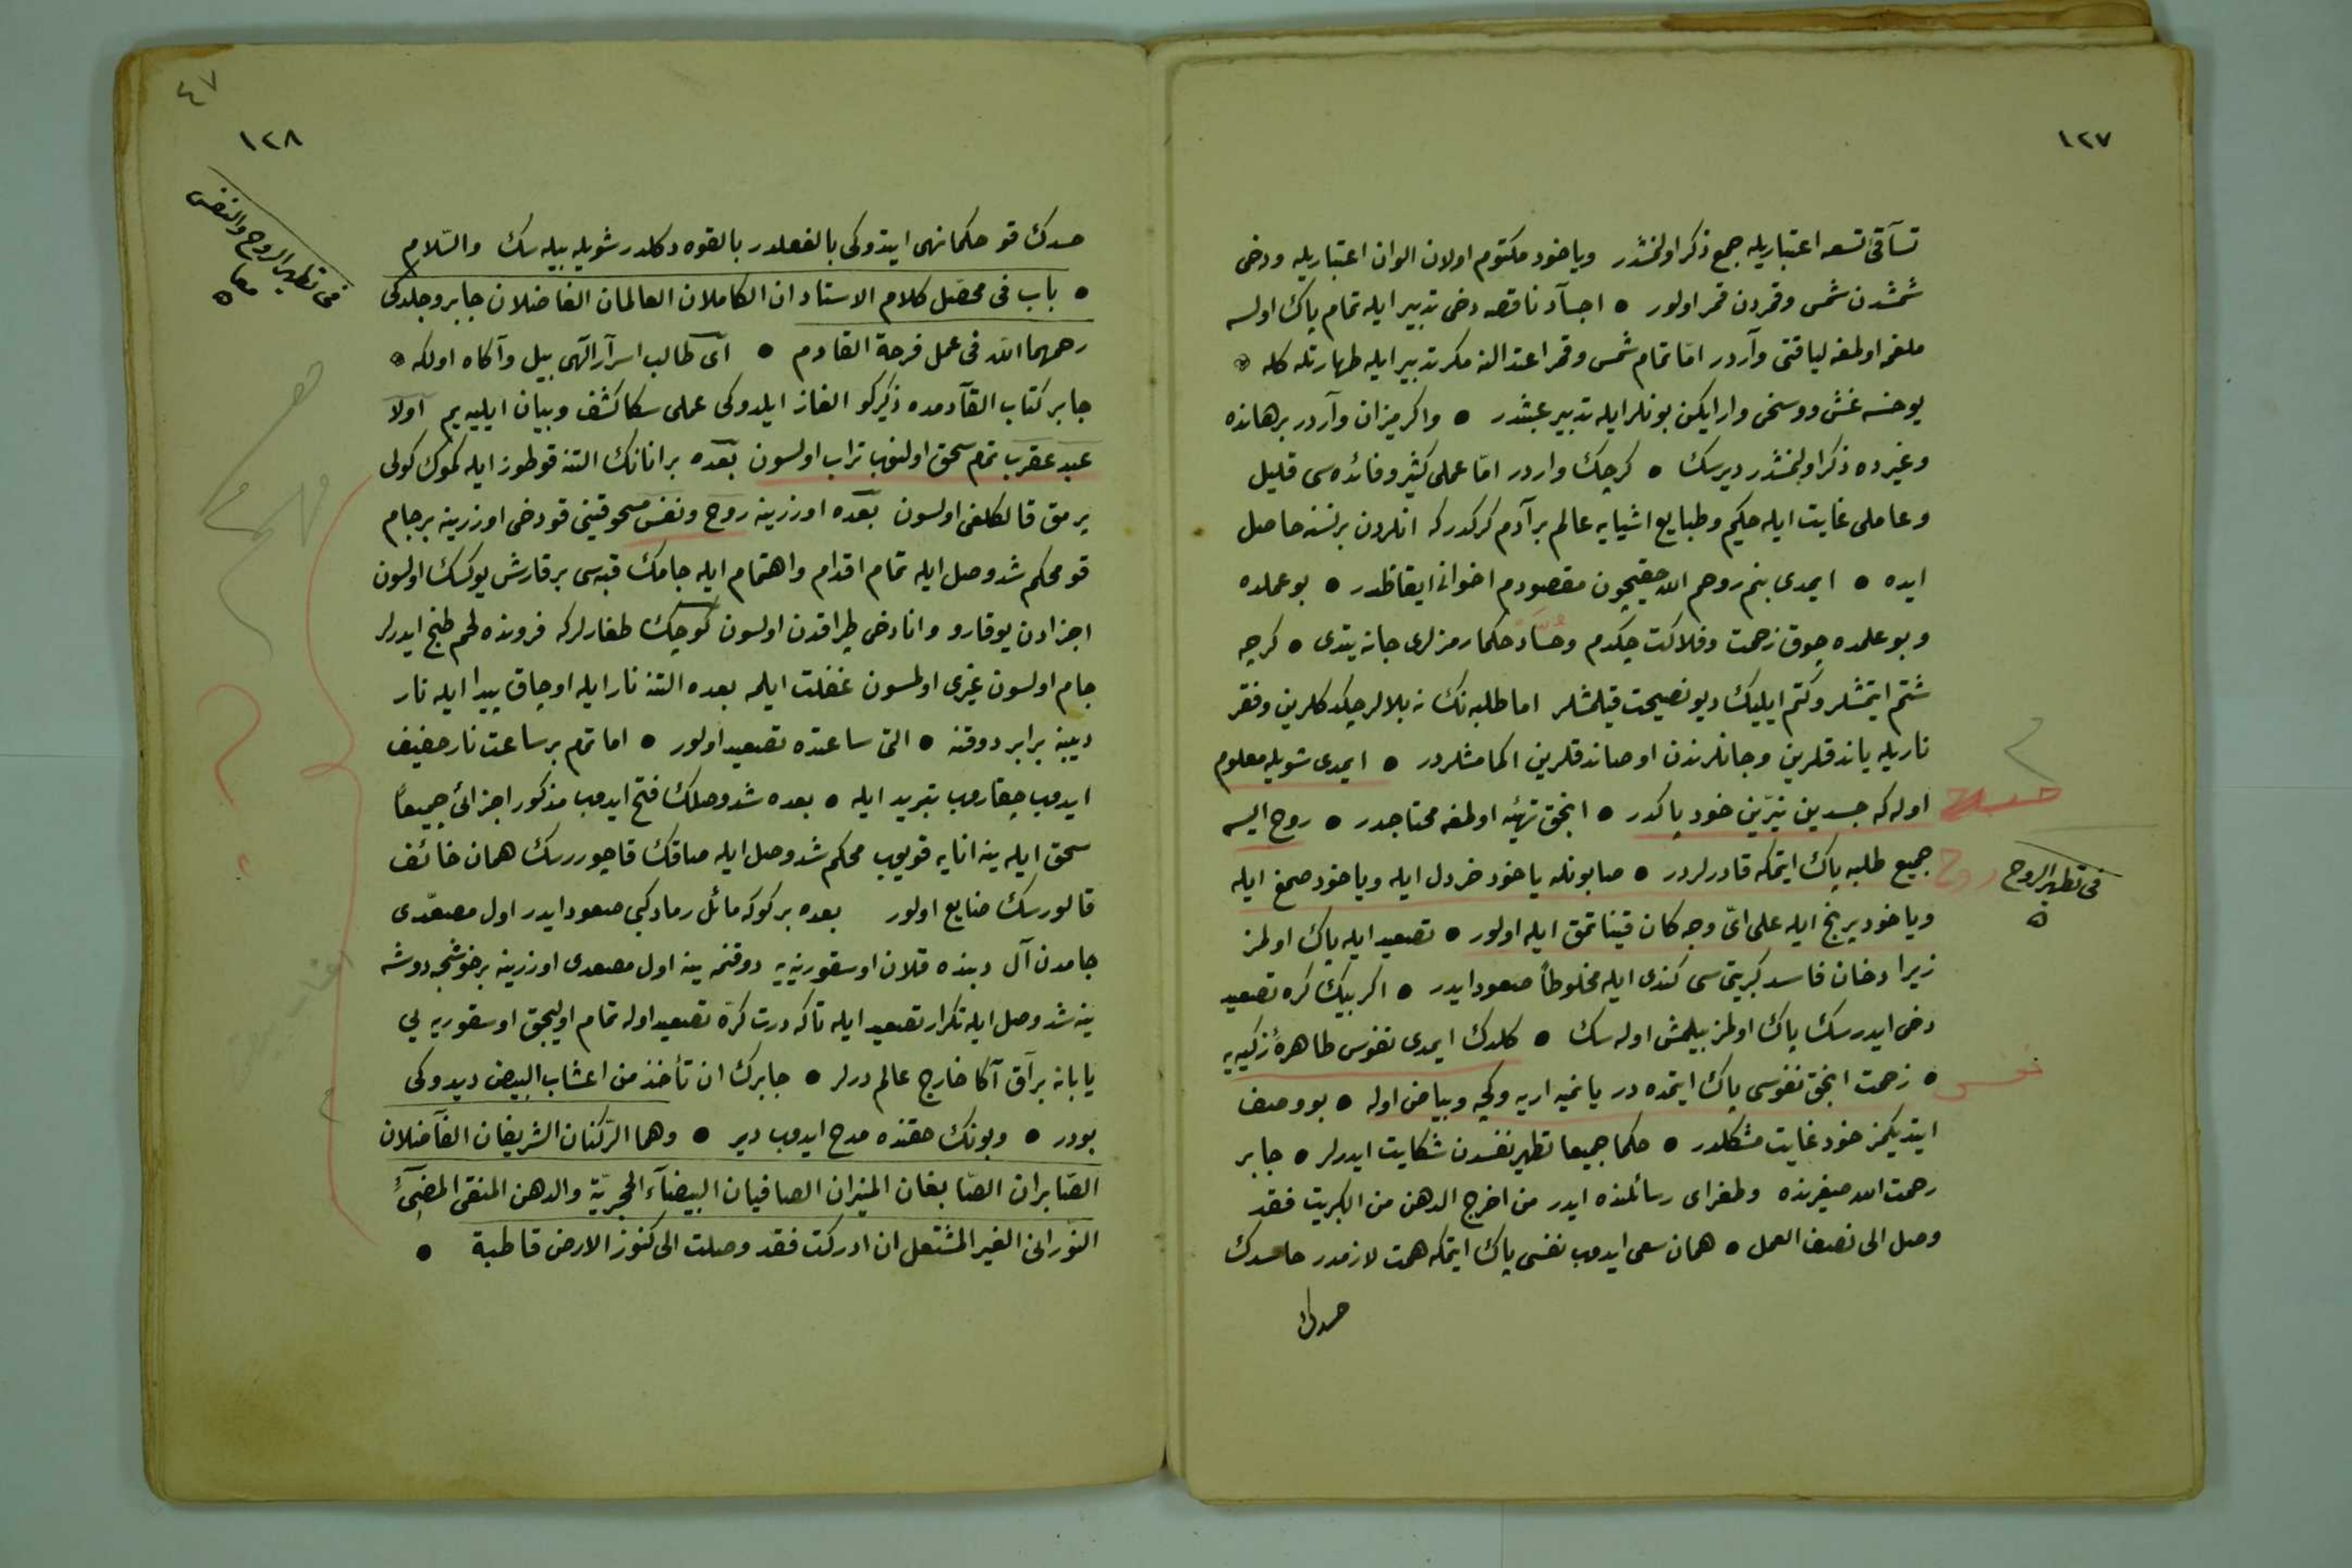 ١٢٧
تسآقئ تسعه اعتباريله جمع ذكر اولنمشدر وياخود مكتوم اولان الوان اعتباريله ودخى
شمشدن شمس وقمردن قمر اولور ● اجسآد ناقصه دخى تدبير ايله تمام پاك اولسه
ملغمه اولمغه لياقتى وآردر امّا تمام شمس وقمر اعتدالنه مكر تدبير ايله طهارتله كله
يوخسه غش ووسخى وار ايكن بونلر ايله تدبير عبثدر ● واكر ميزان وآردر برهانده
وغيرده ذكر اولنمشدر ديرسك ● كرچك واردر امّا عملى كثير وفائده سى قليل
وعاملى غايت ايله حكيم وطبايع اشيايه عالم بر آدم كركدركه انلردن برنسنه حاصل
ايده ● ايمدى بنم روحم الله حقيچون مقصودم اخوانى ايقاظدر ● بو عملده
وبو علمده چوق زحمت وفلاكت چكدم وحسّاد حكما رمزلرى جانه يتدى ● كرچه
شتم ايتمشلر وكتم ايليك ديو نصيحت قيلمشلر اما طلبه نك نه بلالر چكدكلرين وفقر
ناريله ياندقلرين وجانلرندن اوصاندقلرين اكلامشلردر ● ايمدى شويله معلوم
اوله كه جسدين نيّرين خود پاكدر ● انجق تهيّئه اولمغه محتاجدر ● روح ايسه
جميع طلبه پاك ايتمكه قادرلردر ● صابونله ياخود خردل ايله وياخود صمغ ايله
وياخود يرنج ايله على اىّ وجه كان قيناتمق ايله اولور ● تصعيد ايله پاك اولمز
زيرا دخان فاسد كبريتى سى كندى ايله مخلوطاً صعود ايدر ● اكر بيك كره تصعيد
دخى ايدرسك پاك اولمز بيلمش اوله سك ● كلدك ايمدى نفوس طاهرۀ زكيه يه
● زحمت انجق نفوسى پاك ايتمده در يانميه اريه وكچه وبياض اوله ● بو وصف
ايتديكمز خود غايت مشكلدر ● حكما جميعا تطهير نفسدن شكايت ايدرلر ● جابر
رحمت الله صغيرنده وطغراى رسائلنده ايدر من اخرج الدهن من الكبريت فقد
وصل الى نصف العمل ● همان سعى ايدوب نفسى پاك ايتمكه همت لازمدر حاسدك
حسدك
جسد
روح
فى تطهير الروح
نفس
٤٧
١٢٨
فى تطهير الروح والنفس
معا
حسدك قو حكمانهى ايتدوكى بالفعلدر بالقوه دكلدر شويله بيله سك والسّلام
● باب فى محصّل كلام الاستادان الكاملان العالمان الفاضلان جابر وجلدكى
رحمهما الله فى عمل فرحة القادم ● اى طالب اسرآر الٓهى بيل وآكاه اولكه
جابر كتاب القآدمده ذكركو الغاز ايلدوكى عملى سكا كشف وبيان ايلييه يم اولا
عبد عقرب تمام سحق اولنوب تراب اولسون بعده بر انانك التنه قوطوز ايله كموك كولى
پرمق قالكلغى اولسون بعده اوزرينه روح ونفس مسحوقينى قو دخى اوزرينه بر جام
قو محكم شد وصل ايله تمام اقدام واهتمام ايله جامك قبه سى برقارش يوكسك اولسون
اجزادن يوقارو وانا دخى طپراقدن اولسون كوچك طغارلركه فرونده لحم طبخ ايدرلر
جام اولسون غيرى اولمسون غفلت ايلمه بعده التنه نار ايله اوجاق پيدا ايله نار
ديبينه برابر دوقنه ● التى ساعتده تصعيد اولور ● اما تمام برساعت نار خفيف
ايدوب چقاروب تبريد ايله ● بعده شد وصلك فتح ايدوب مذكور اجزائ جميعاً
سحق ايله ينه انايه قويوب محكم شد وصل ايله صاقك قاچوررسك همان خائف
قالورسك ضايع اولور بعده بر كوكه مائل رماد كبى صعود ايدر اول مصعّدى
جامدن آل دبنده قلان اوسقورينه يه دوقنمه ينه اول مصعدى اوزرينه برخوشجه دوشه
ينه شد وصل ايله تكرار تصعيد ايله تاكه درت كرّه تصعيد اوله تمام اوليجق اوسقوريه يى
يابانه براق آكا خارج عالم درلر ● جابرك ان تأخذ من اعشاب البيض ديدوكى
بودر ● وبونك حقنده مدح ايدوب دير ● وهما الرّكنان الشريفان الفآضلان
الصّابران الصّابغان المنيران الصافيان البيضآء الحجريّة والدهن المنقى المضئ
النّورانى الغير المشتعل ان ادركت فقد وصلت الى كنوز الارض قاطبة ●